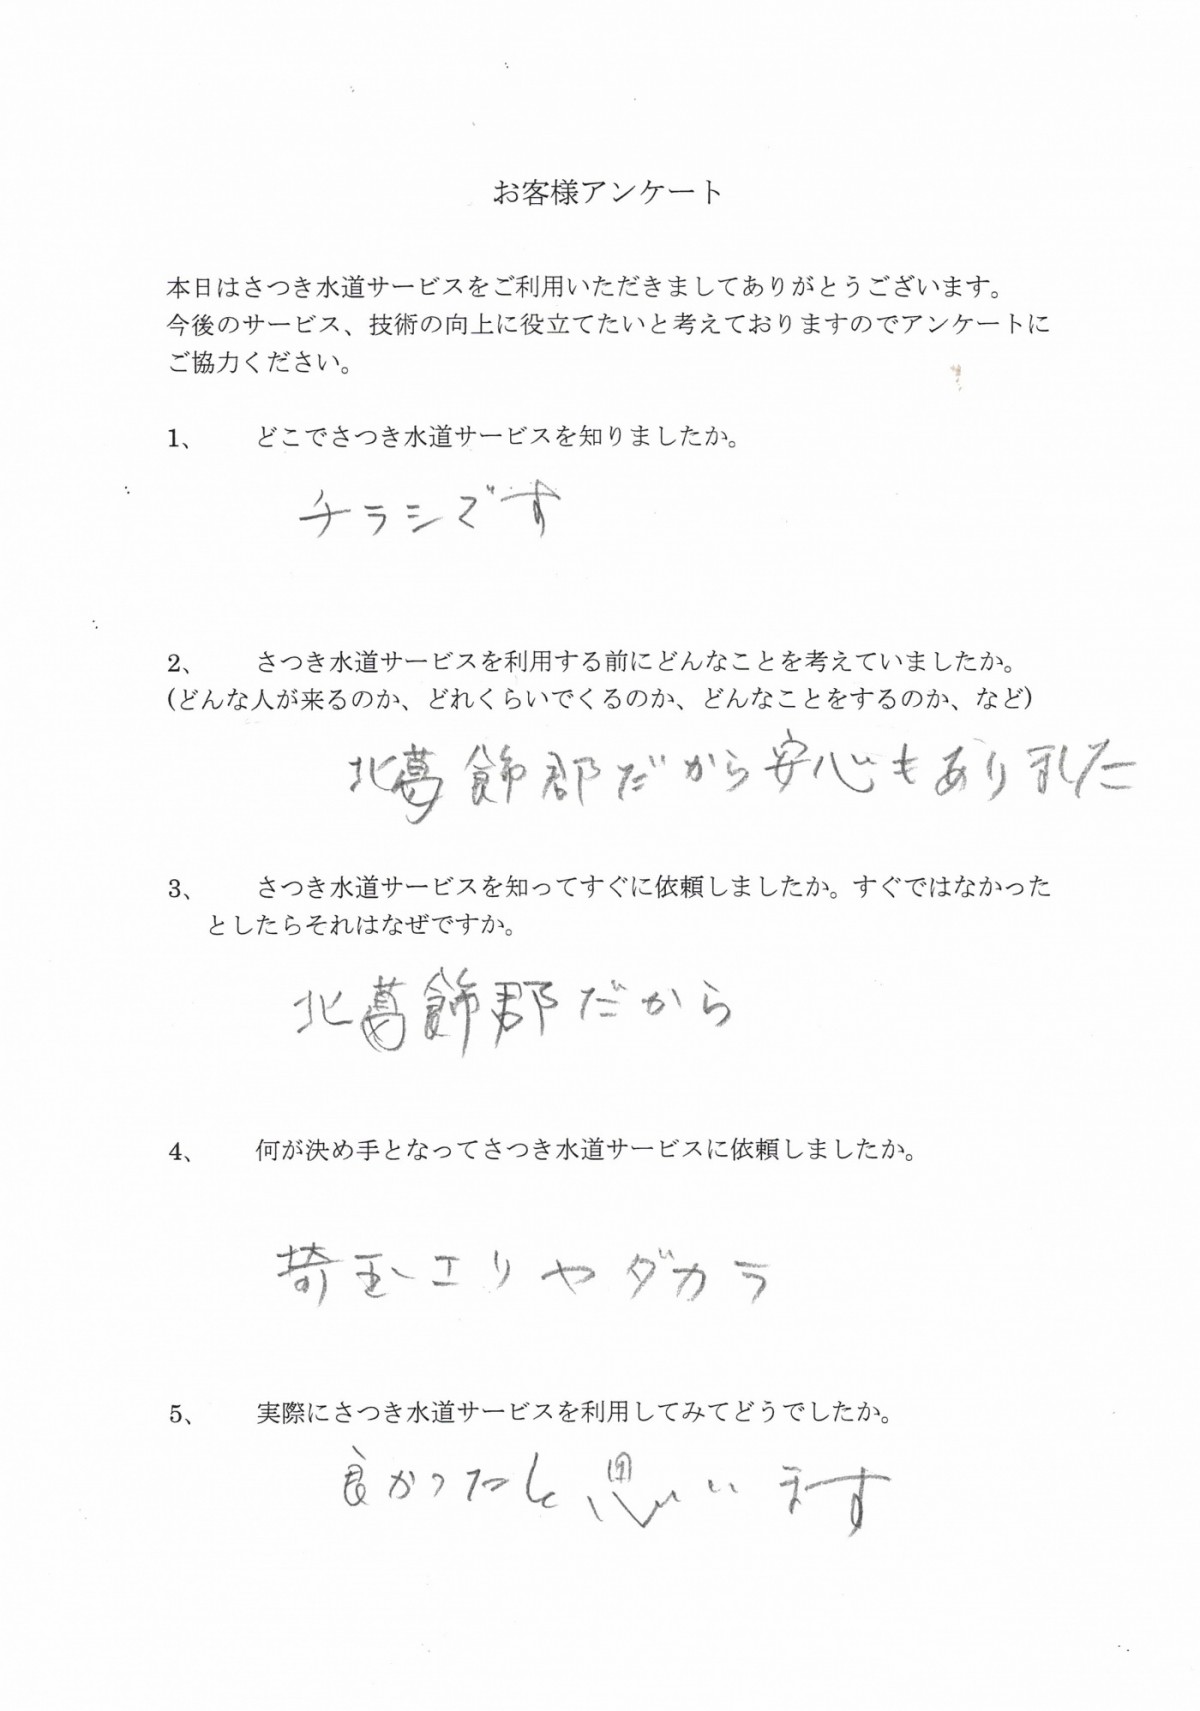 お客様アンケート
本日はさつき水道サービスをご利用いただきましてありがとうございます。
今後のサービス、技術の向上に役立てたいと考えておりますのでアンケートに
ご協力ください。
1、 どこでさつき水道サービスを知りましたか。
チラシです
2、 さつき水道サービスを利用する前にどんなことを考えていましたか。
(どんな人が来るのか、どれくらいでくるのか、どんなことをするのか、など)
北葛飾郡だから安心もありました
3、 さつき水道サービスを知ってすぐに依頼しましたか。すぐではなかった
としたらそれはなぜですか。
北葛飾郡だから
4、 何が決め手となってさつき水道サービスに依頼しましたか。
埼玉エリヤダカラ
5、 実際にさつき水道サービスを利用してみてどうでしたか。
良かったと思います